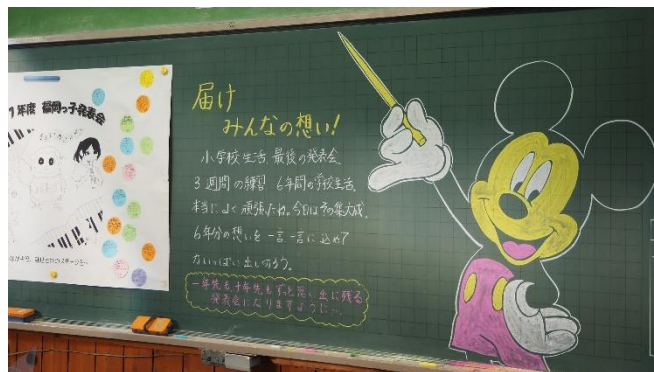 7年度 福岡っ子発表会
届け
みんなの想い!
小学校生活、最後の発表会。
3週間の練習 6年間の学校生活。
本当によく頑張たね。今日はその集大成。
6年分の想いを一言一言に込めて
力いっぱい出しきろう。
一年先も十年先もずっと思い出に残る
発表会になりますように…